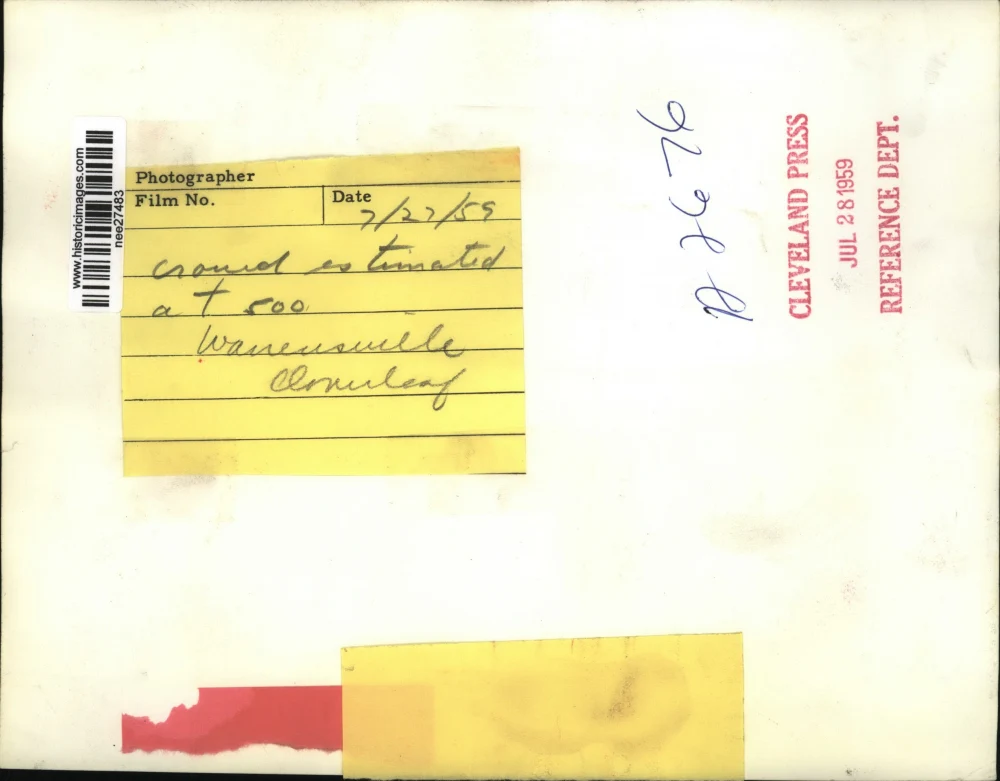 Photographer
Film No.
Date
7/27/59
crowd estimated
at 500
Warrensville
Cloverleaf
www.historicimages.com
nee27483
CLEVELAND PRESS
JUL 28 1959
REFERENCE DEPT.